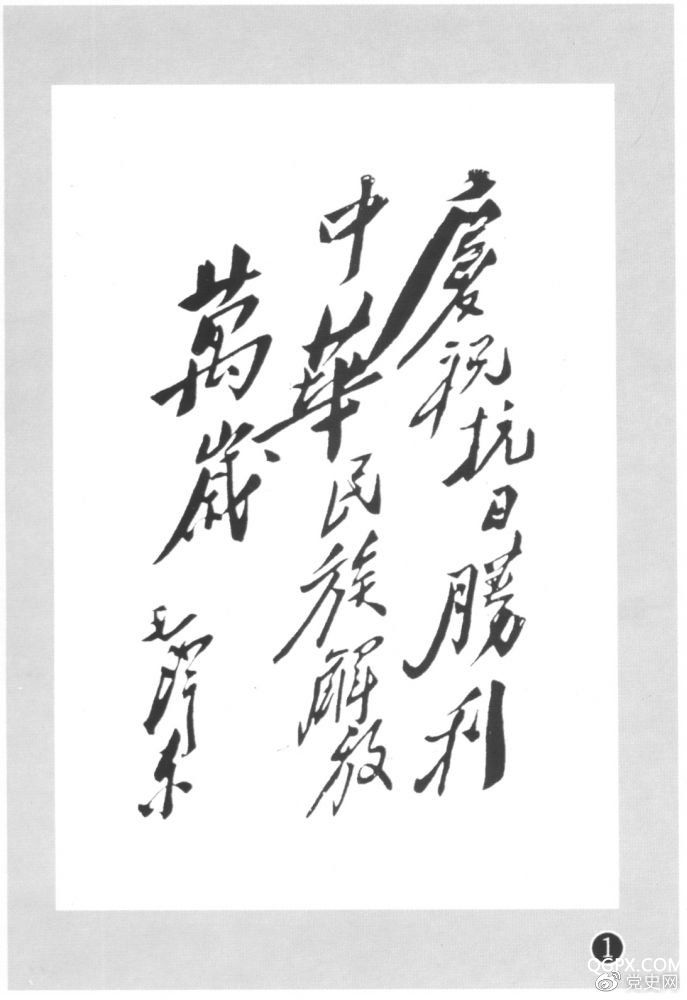 慶祝抗日勝利
中華民族解放
萬歲
毛澤东
1
QGPX.COM
党史网